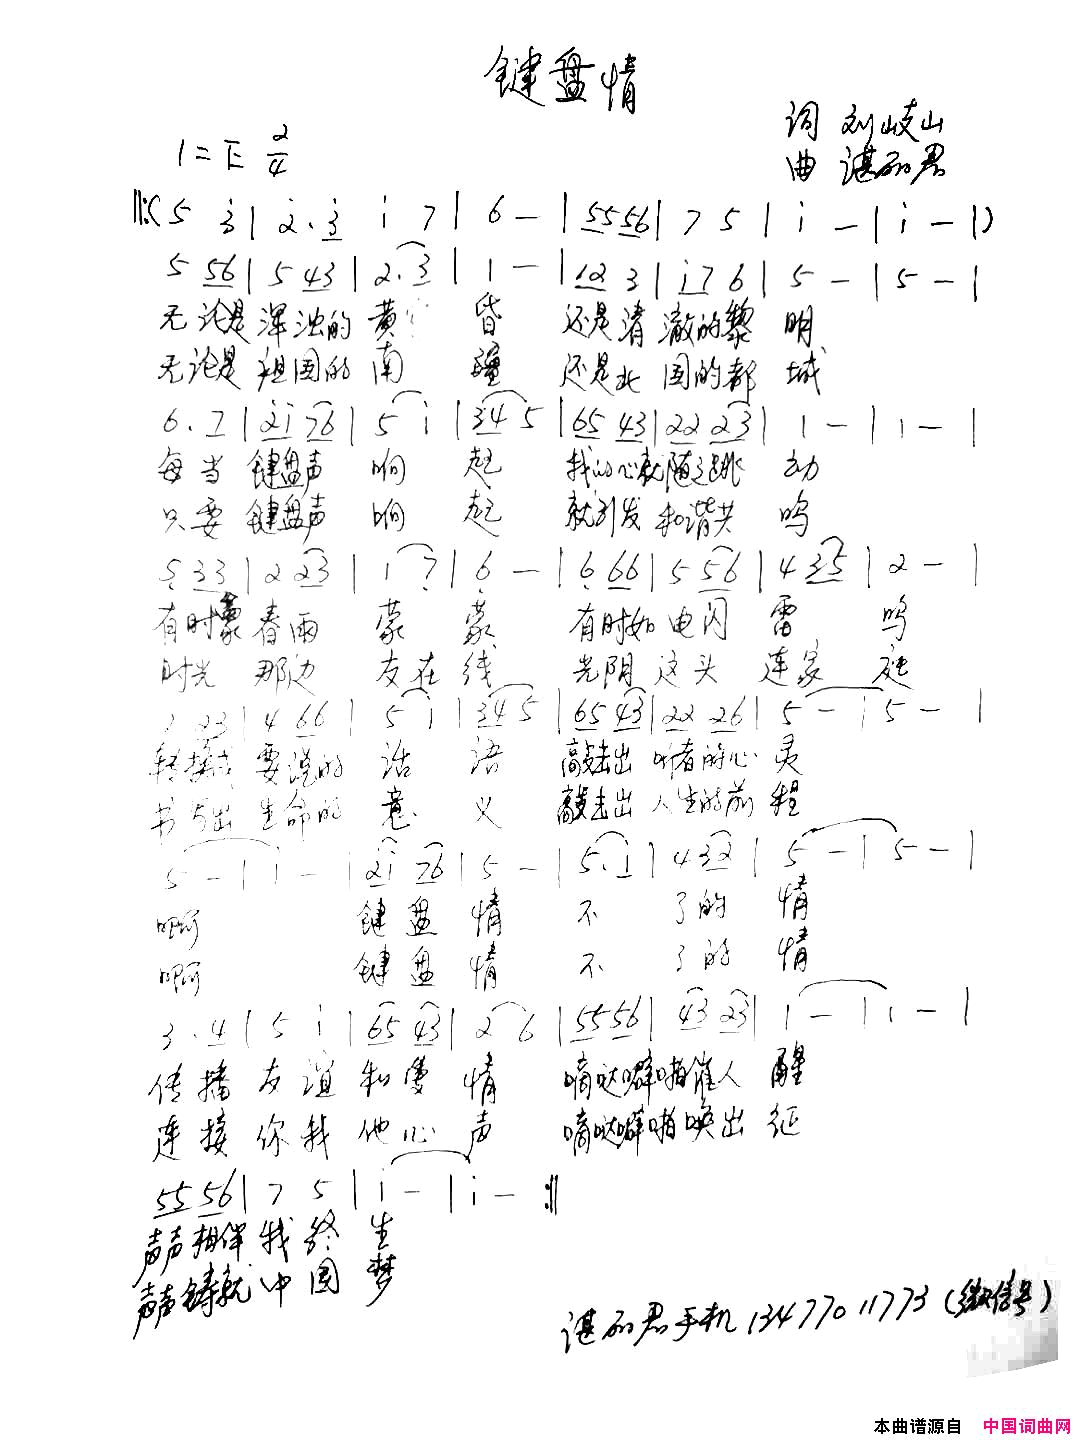 键盘情
词 刘岐山
1=E 2/4
曲 谌丽君
‖:( 5 3̇ | 2̇. 3̇ i 7 | 6 — | 5556 | 7 5 | i — | i — | )
5 56 | 5 43 | 2. 3 | 1 — | 12 3 | i7 6 | 5 — | 5 — |
无论是浑浊的黄 昏 还是清澈的黎 明
无论是祖国的南 疆 还是北国的都 城
6. 7 | 2̇i 76 | 5 i | 34 5 | 65 43 | 22 23 | 1 — | 1 — |
每当键盘声 响 起 我的心就随之跳 动
只要键盘声 响 起 就引发和谐共 鸣
5 33 | 2 23 | 1 7 | 6 — | 6 66 | 5 56 | 4 35 | 2 — |
有时 春雨 蒙 蒙 有时如电闪 雷 鸣
时光那边 友在线 光阴这头 连家 庭
23 | 4 66 | 5 i | 34 5 | 65 43 | 22 26 | 5 — | 5 — |
转换成要说的 话 语 敲击出听者的心灵
书写出生命的 意 义 敲击出人生的前程
5 — | i — | 2̇i 76 | 5 — | 5. i | 4 32 | 5 — | 5 — |
啊 键盘情 不 了的 情
啊 键盘情 不 了的 情
3. 4 | 5 i | 65 43 | 2 6 | 5556 | 43 23 | 1 — | 1 — |
传播友谊和爱情 嘀哒噼啪催人醒
连接你我他心声 嘀哒噼啪唤出征
55 56 | 7 5 | i — | i — :‖
声声相伴我终 生
声声铸就中国 梦
谌丽君手机 13477011773 (微信号)
本曲谱源自 中国词曲网